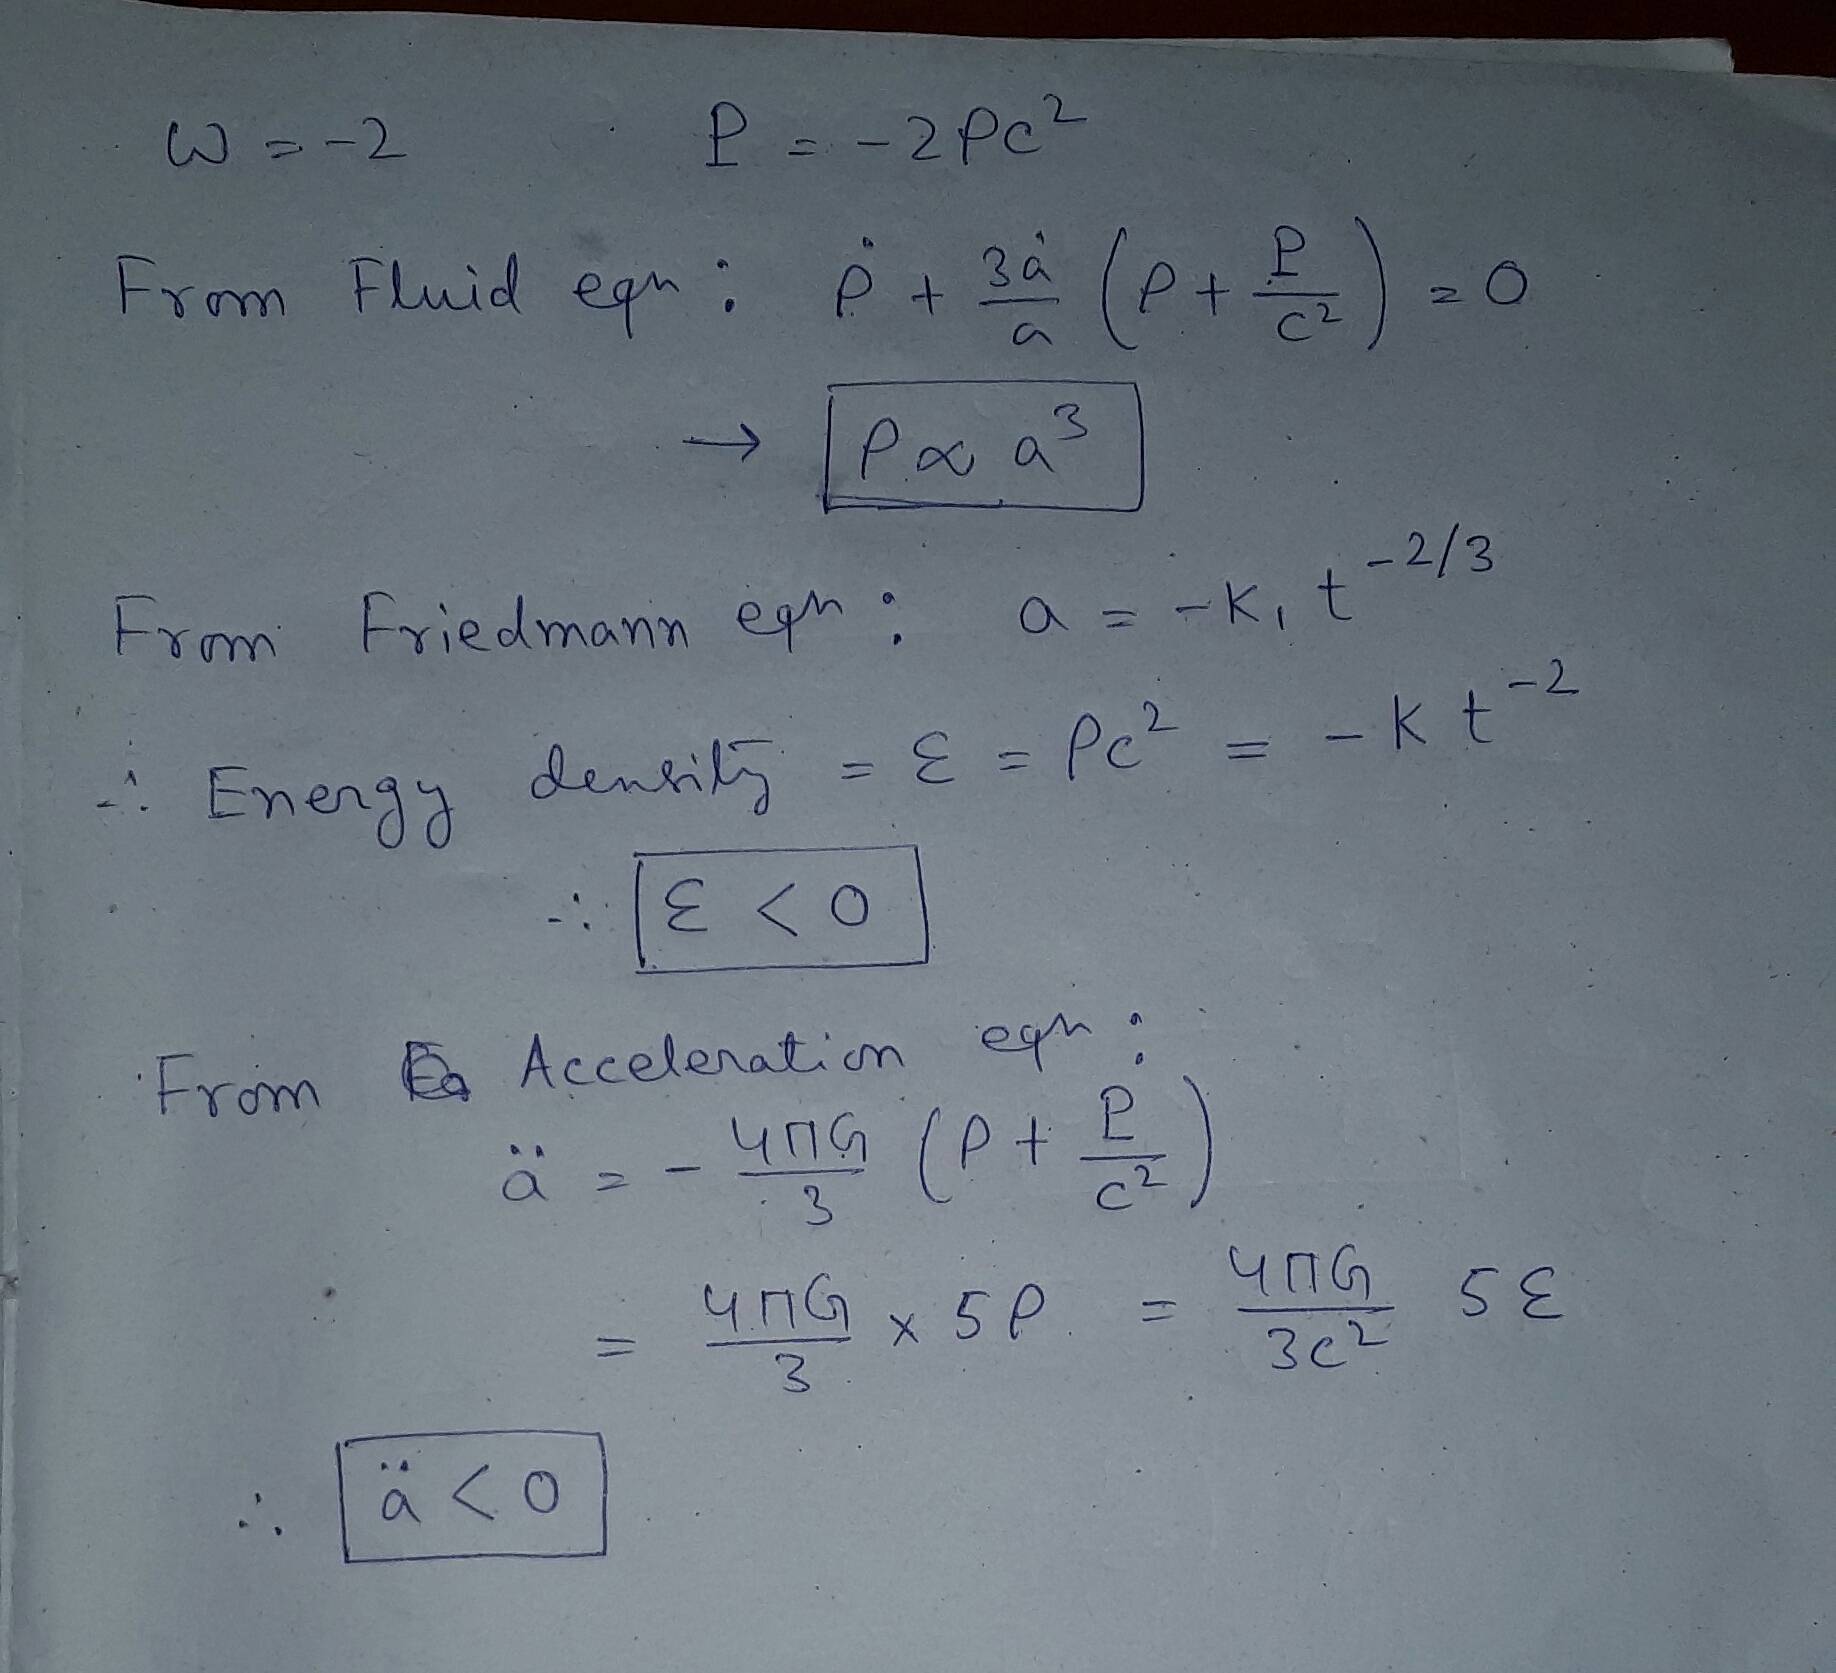 ω = -2 P = -2ρc²
From Fluid eqn : ρ̇ + 3ȧ/a (ρ + P/c²) = 0
→ ρ ∝ a³
From Friedmann eqn : a = -K₁ t^-2/3
∴ Energy density = ε = ρc² = -K t^-2
∴ ε < 0
From Acceleration eqn :
ä = - 4πG/3 (ρ + P/c²)
= 4πG/3 × 5ρ = 4πG/3c² 5ε
∴ ä < 0